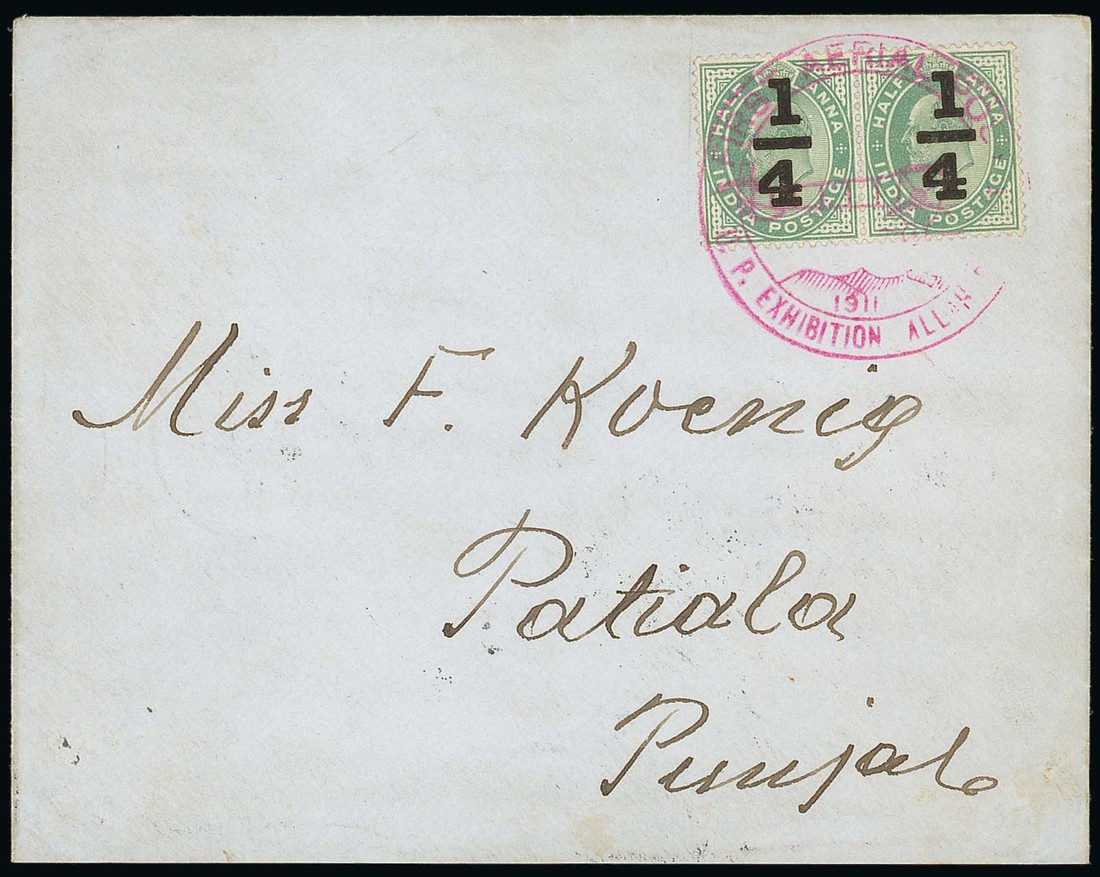 FIRST AERIAL POST
HALF ANNA
INDIA POSTAGE
1/4
HALF ANNA
INDIA POSTAGE
1/4
1911
U. P. EXHIBITION ALLAH
Miss F. Koenig
Patiala
Punjab